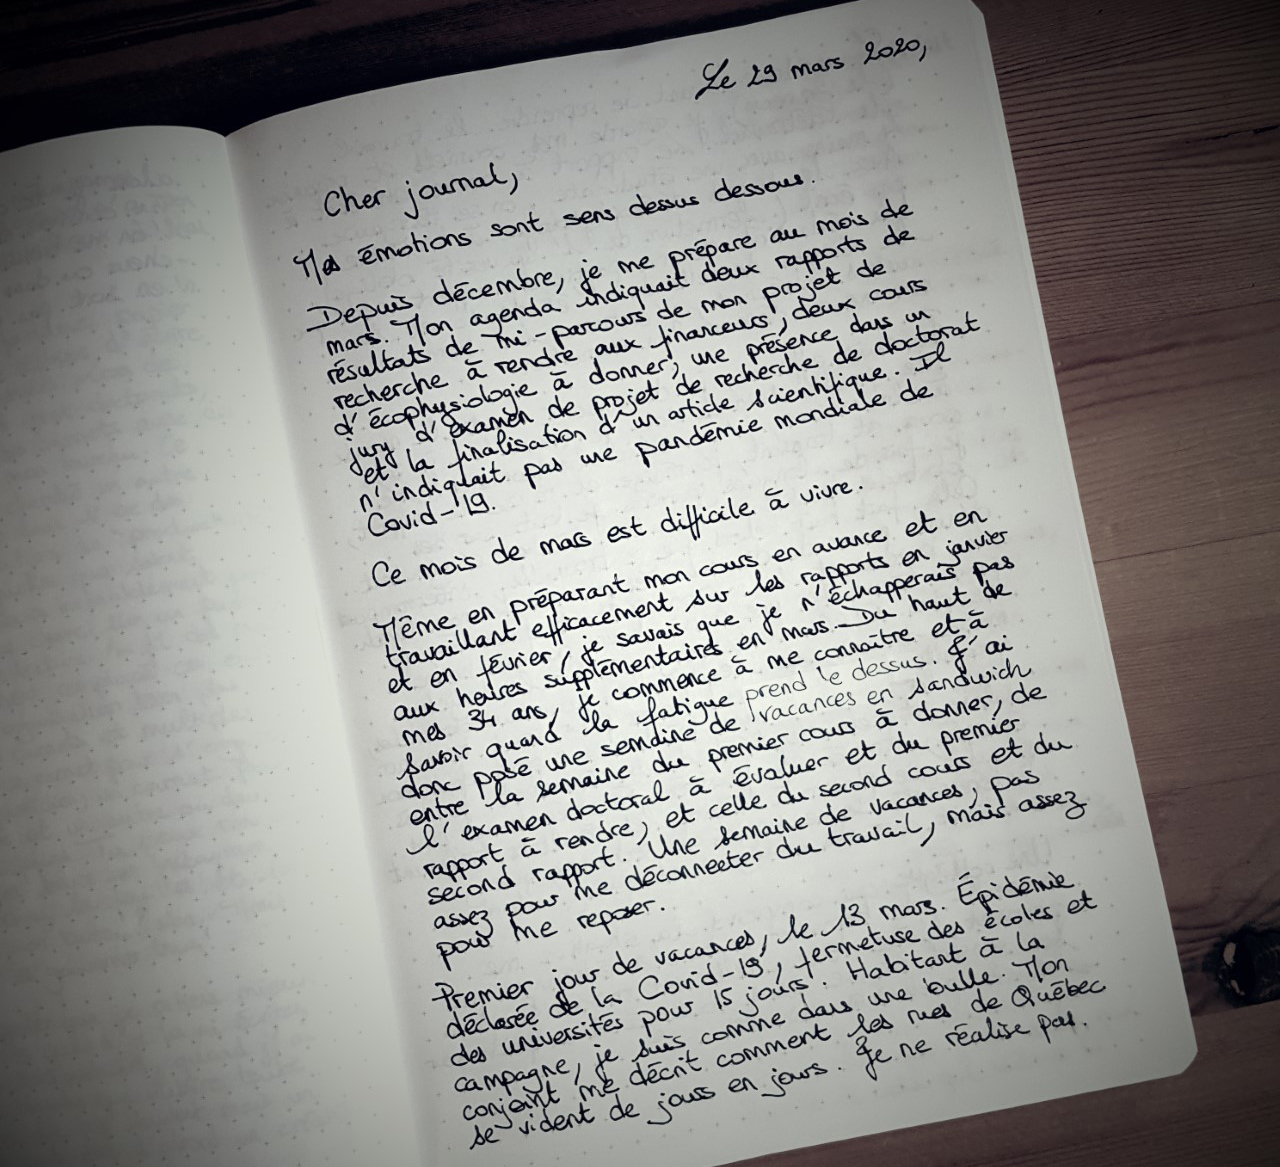 Le 29 mars 2020,
Cher journal,
Mes émotions sont sens dessus dessous.
Depuis décembre, je me prépare au mois de
mars. Mon agenda indiquait deux rapports de
résultats de mi-parcours de mon projet de
recherche à rendre aux financeurs, deux cours
d'écophysiologie à donner, une présence dans un
jury d'examen de projet de recherche de doctorat
et la finalisation d'un article scientifique. Il
n'indiquait pas une pandémie mondiale de
Covid-19.
Ce mois de mars est difficile à vivre.
Même en préparant mon cours en avance et en
travaillant efficacement sur les rapports en janvier
et en février, je savais que je n'échapperais pas
aux heures supplémentaires en mars. Du haut de
mes 34 ans, je commence à me connaître et à
savoir quand la fatigue prend le dessus. J'ai
donc posé une semaine de vacances en sandwich
entre la semaine du premier cours à donner, de
l'examen doctoral à évaluer et du premier
rapport à rendre, et celle du second cours et du
second rapport. Une semaine de vacances, pas
assez pour me déconnecter du travail, mais assez
pour me reposer.
Premier jour de vacances, le 13 mars. Épidémie
déclarée de la Covid-19, fermetuse des écoles et
des universités pour 15 jours. Habitant à la
campagne, je suis comme dans une bulle. Mon
conjoint me décrit comment les rues de Québec
se vident de jours en jours. Je ne réalise pas.